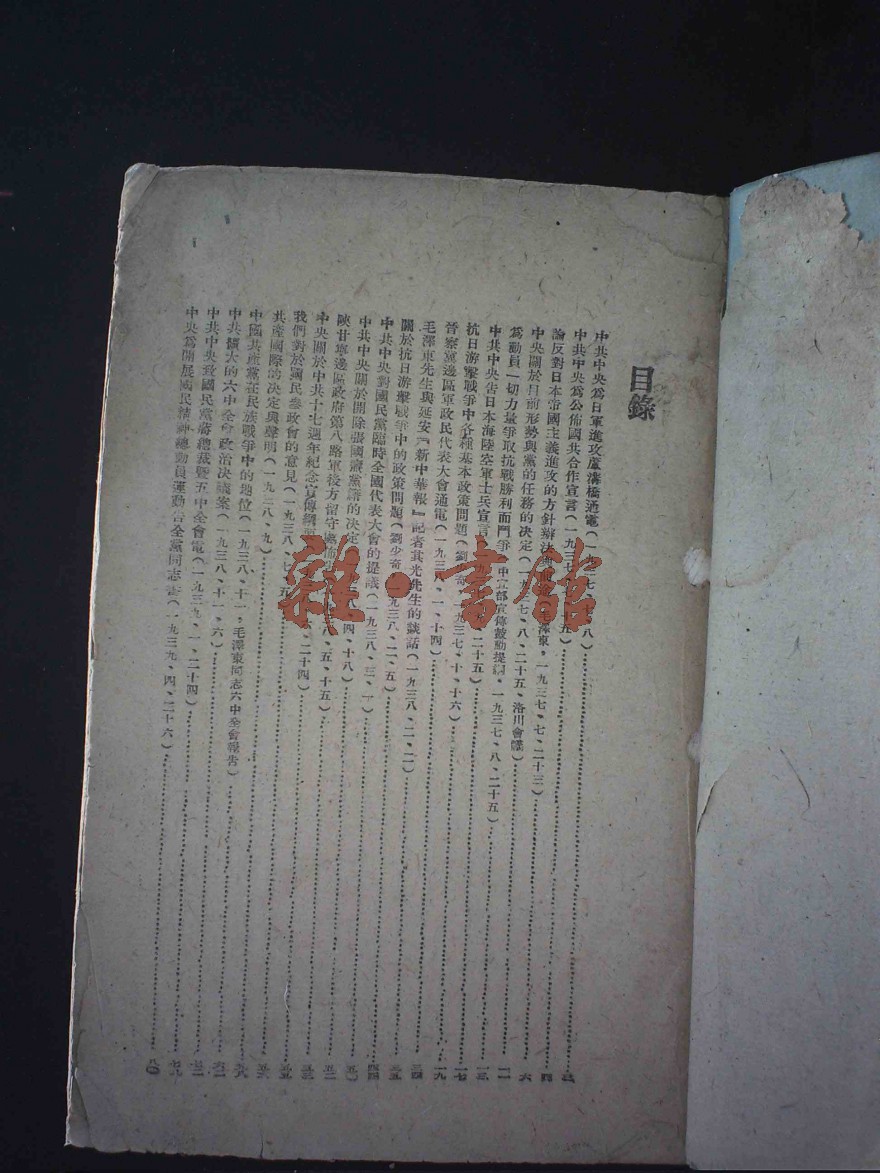 目錄
中共中央為日軍進攻盧溝橋通電(一 七 八)
中共中央為公佈國共合作宣言(一九三七 五)
論反對日本帝國主義進攻的方針辦法 澤東,一九三七、七、二十三)
中央關於目前形勢與黨的任務的決定(一九 七、八、二十五、洛川會議)
為動員一切力量爭取抗戰勝利而鬥爭 中宣部宣傳鼓動提綱,一九三七、八、二十五)
中共中央告日本海陸空軍士兵宣言 九 二十五)
抗日游擊戰爭中各種基本政策問題(劉 奇,一九三七、十、十六)
晉察冀邊區軍政民代表大會通電(一九三 、一、十四)
毛澤東先生與延安『新中華報』記者其光先生的談話(一九三八、二、二)
關於抗日游擊戰爭中的政策問題(劉少奇,一九三八、二、五)
中共中央對國民黨臨時全國代表大會的提議(一九三八、三、一)
中共中央關於開除張國燾黨籍的決定 八、四、十八)
陝甘寧邊區政府第八路軍後方留守處佈 八、五、十五)
中央關於中共十七週年紀念宣傳綱 二十四)
我們對於國民參政會的意見(一九三八、七、五
共產國際的決定與聲明(一九三八、九)
中國共產黨在民族戰爭中的地位(一九三八、十一,毛澤東同志六中全會報告)
中共擴大的六中全會政治決議案(一九三八、十一、六)
中共中央致國民黨蔣總裁暨五中全會電(一九三九、一、二十四)
中央為開展國民精神總動員運動告全黨同志書(一九三九、四、二十六)
四
六
一一
一三
一七
一九
三四
雜·書館